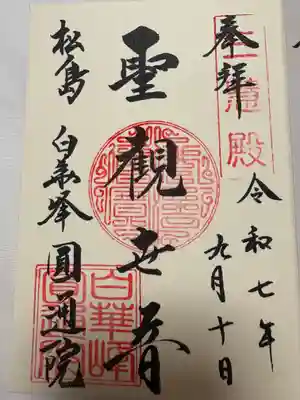 三慧殿
奉拝
令和七年
九月十日
聖觀世音
松島 白華峯 圓通院
白華峰